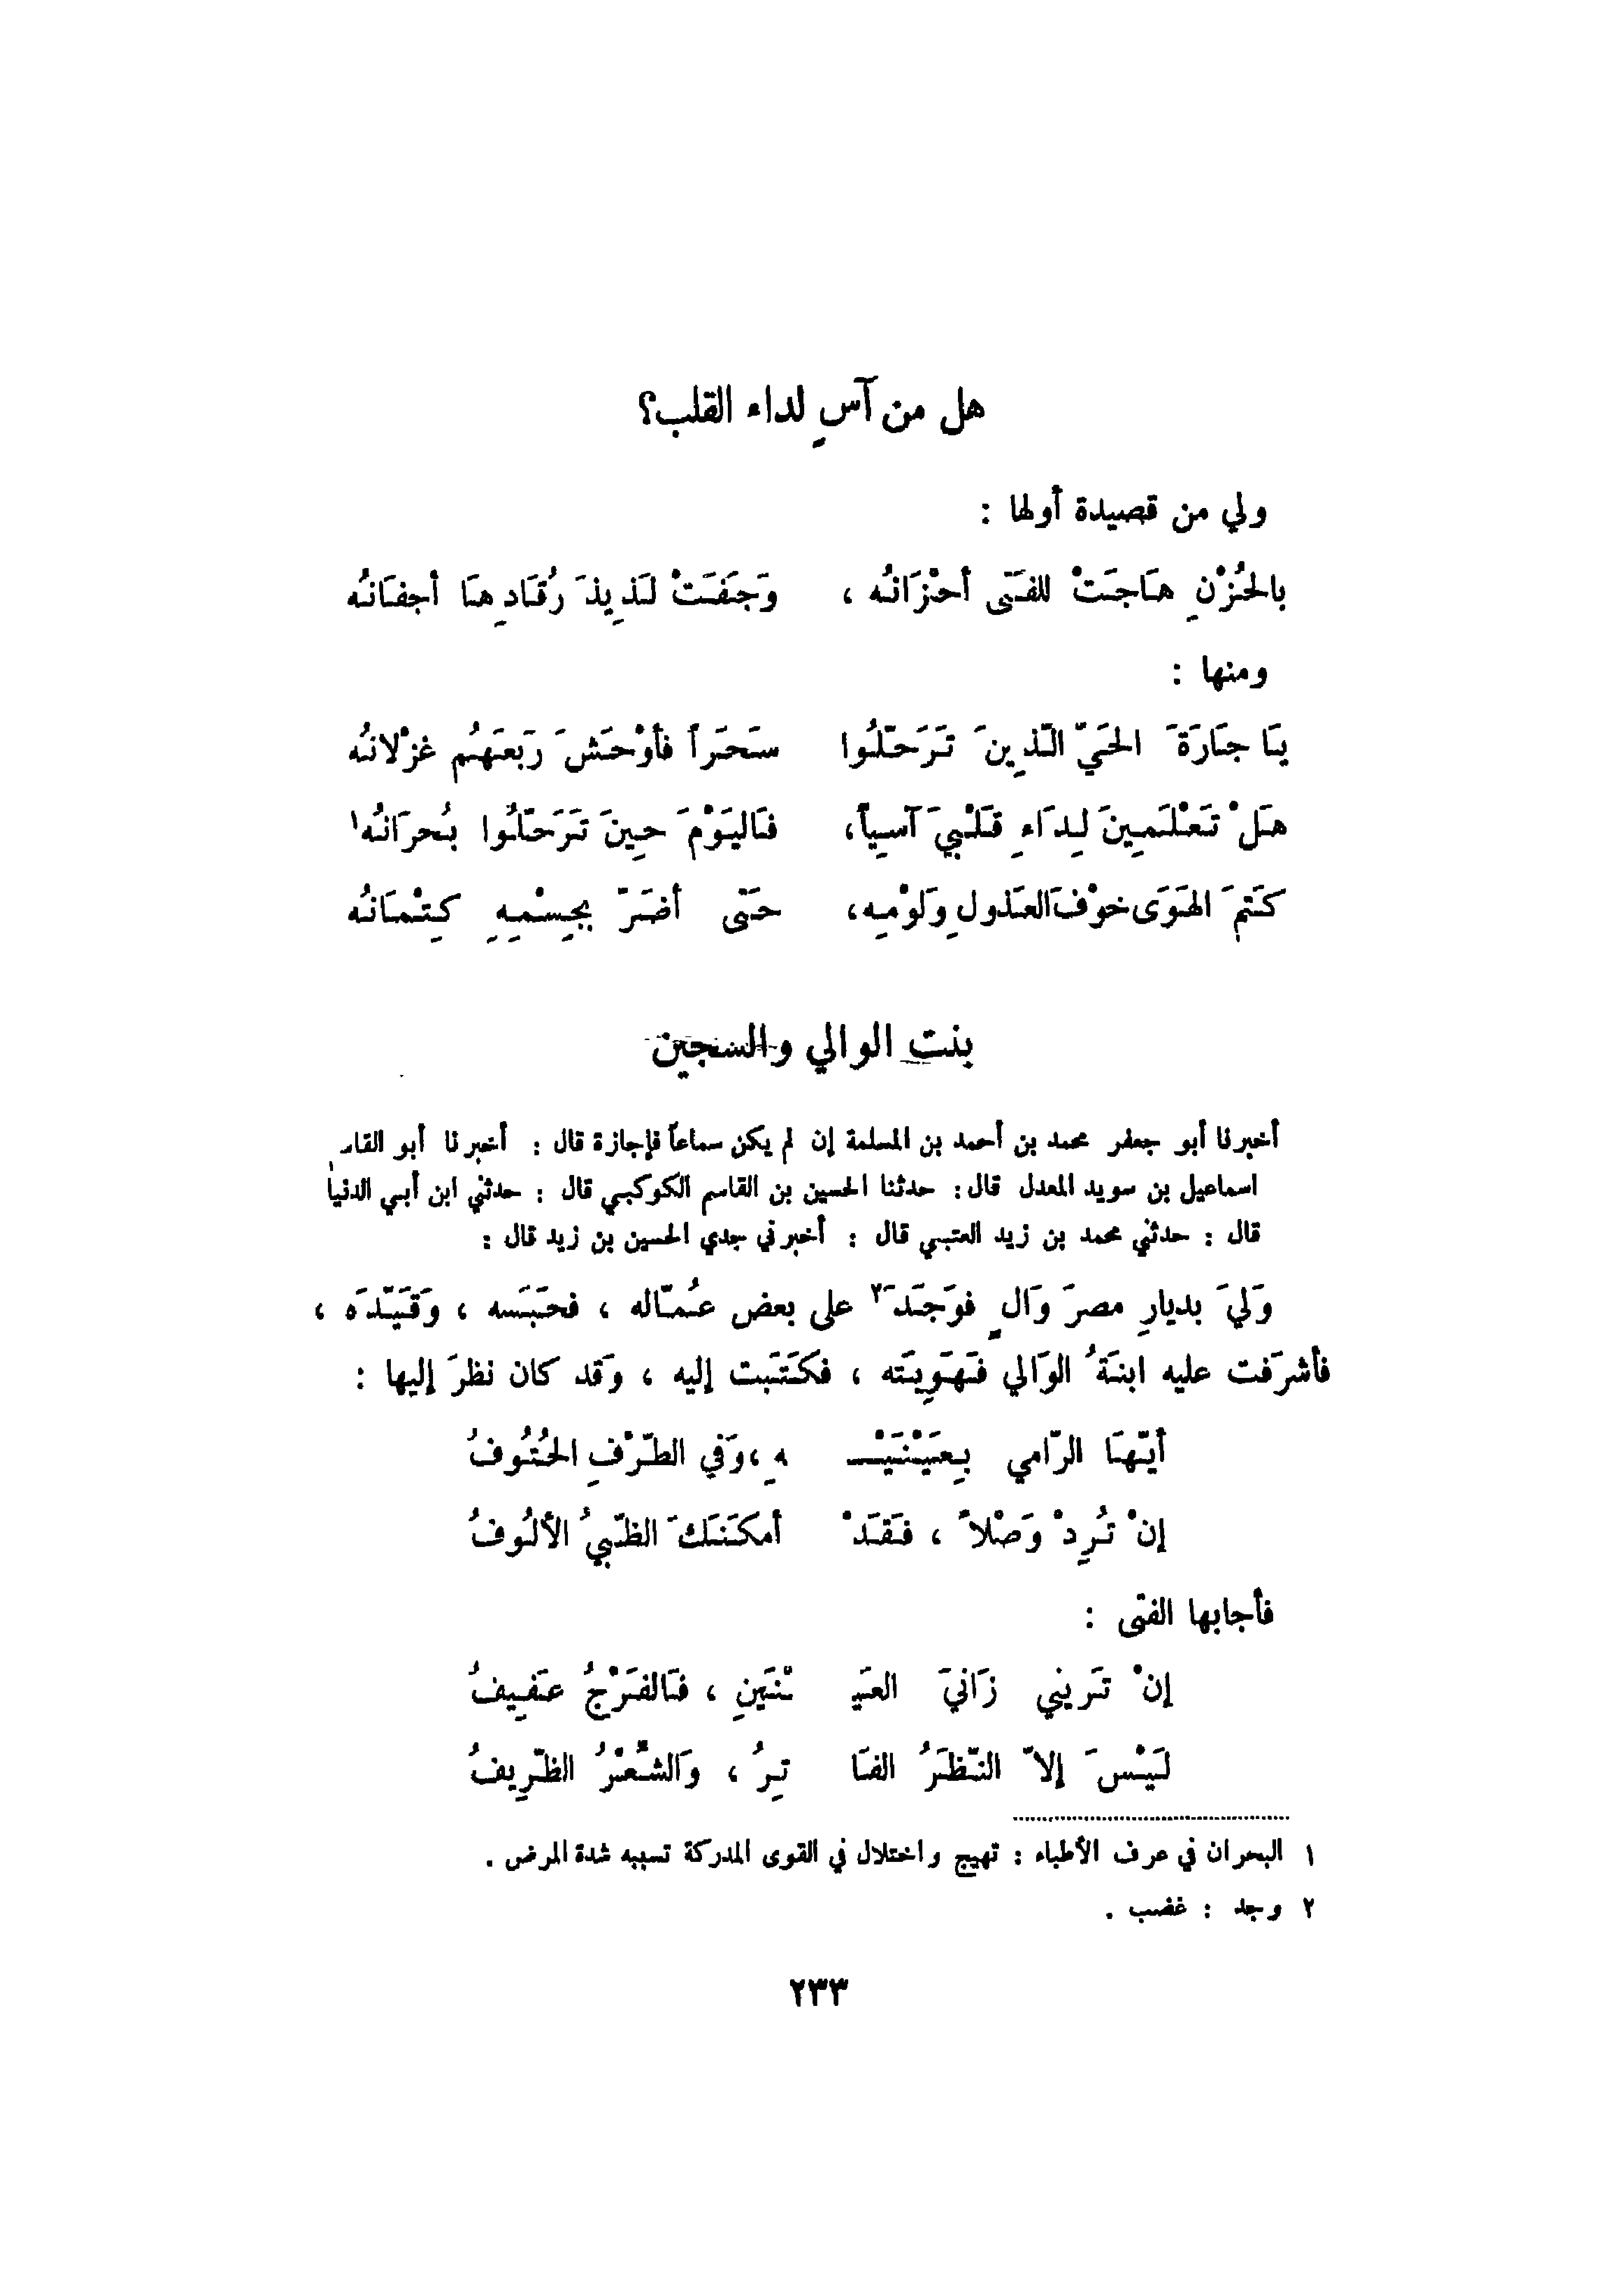 هل من آسٍ لداء القلب؟
ولي من قصيدة أولها :
بالحُزْنِ هَاجَتْ للفَتَى أحْزَانُه ، وَجَفَتْ لَذِيذَ رُقَادِهَا أجفَانُه
ومنها :
يَا جَارَةَ الحَيّ الّذِينَ تَرَحّلُوا سَحَراً فأوْحَشَ رَبَعَهُم غزْلانُه
هَلْ تَعْلَمِينَ لِدَاءِ قَلْبيَ آسِياً، فَاليَوْمَ حِينَ تَرَحّلُوا بُحرَانُه١
كَتمَ الهَوَى خوْفَ العَذولِ وَلَوْمِه، حَتى أضَرّ بجِسْمِهِ كِتْمَانُه
بنت الوالي والسجين
أخبرنا أبو جعفر محمد بن أحمد بن المسلمة إن لم يكن سماعاً فإجازة قال : أخبرنا أبو
اسماعيل بن سويد المعدل قال : حدثنا الحسين بن القاسم الكوكبي قال : حدثني ابن أبي الدنيا
قال : حدثني محمد بن زيد العتبي قال : أخبرني جدي الحسين بن زيد قال :
وَليَ بديارِ مصرَ وَالٍ فوَجَدَ٢ على بعض عُمّاله ، فحَبَسه ، وَقَيّدَه ،
فأشرَفت عليه ابنَةُ الوَالي فَهَوِيَته ، فكَتَبت إليه ، وَقد كان نظرَ إليها :
أيّهَا الرّامي بِعَيْنَيْـ ـهِ ، وَفي الطّرْفِ الحُتُوفُ
إنْ تُرِدْ وَصْلاً ، فَقَدْ أمكَنَكَ الظّبيُ الألُوفُ
فأجابها الفتى :
إنْ تَريني زَانيَ العَيـ ـنَينِ ، فَالفَرْجُ عَفِيفُ
لَيْسَ إلاّ النّظَرُ الفَا تِرُ ، وَالشّعْرُ الظّرِيفُ
١ البحران في عرف الأطباء : تهيج واختلال في القوى المدركة تسببه شدة المرض .
٢ وجد : غضب .
٢٣٣